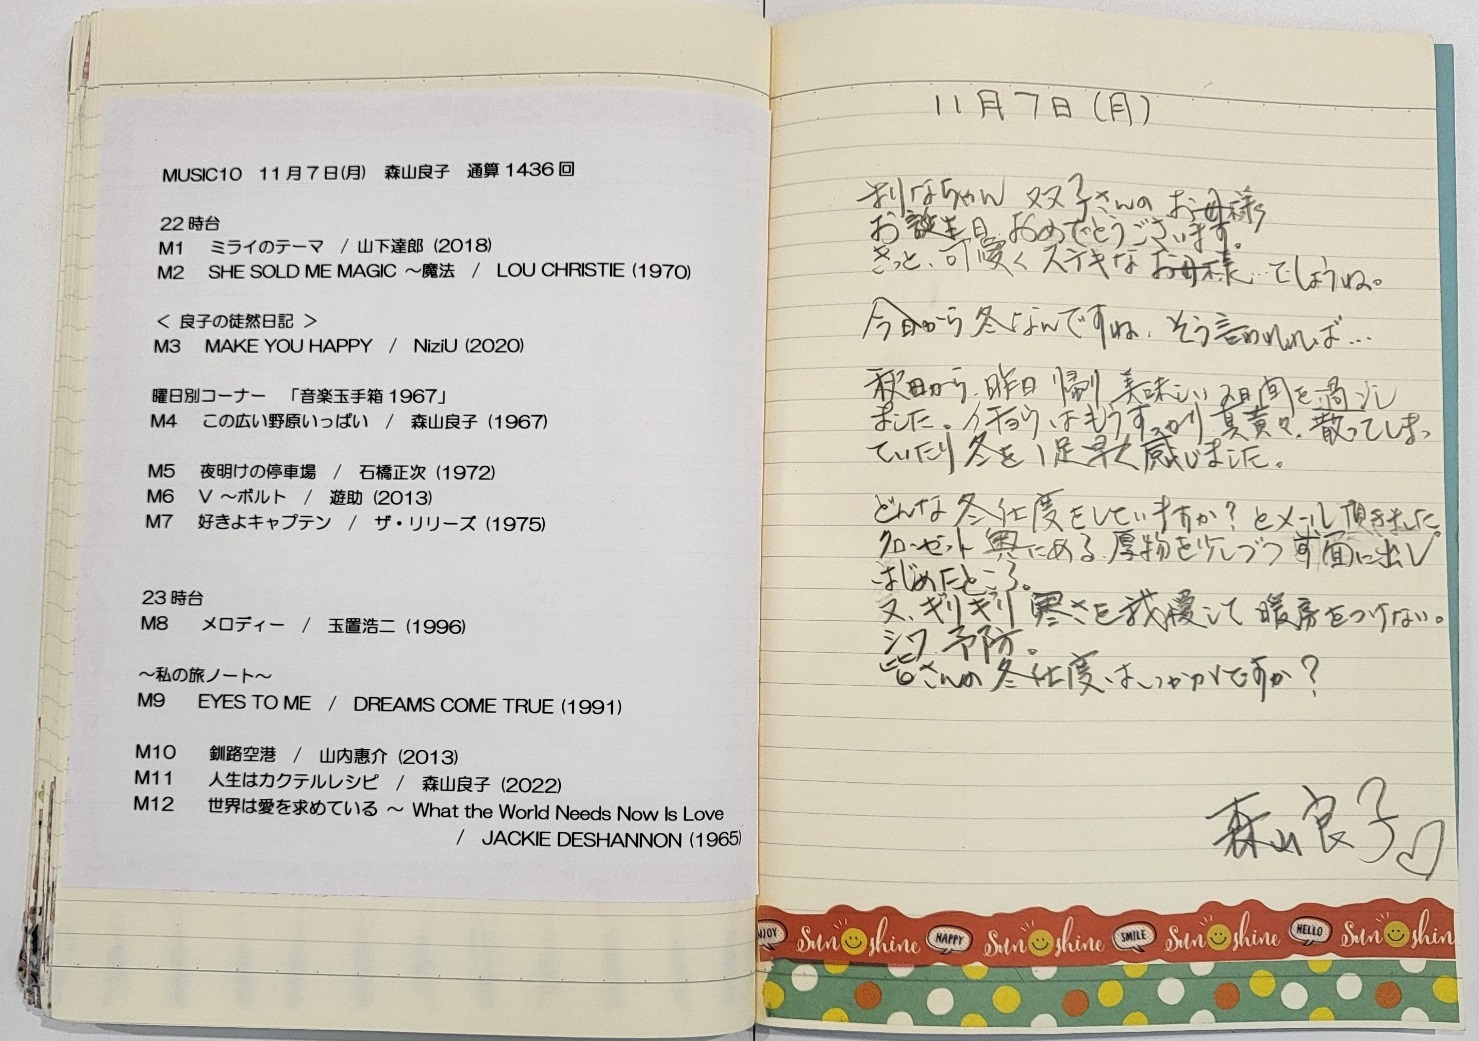 MUSIC10 11月7日(月) 森山良子 通算1436回
22時台
M1 ミライのテーマ / 山下達郎 (2018)
M2 SHE SOLD ME MAGIC ～魔法 / LOU CHRISTIE (1970)
＜ 良子の徒然日記 ＞
M3 MAKE YOU HAPPY / NiziU (2020)
曜日別コーナー 「音楽玉手箱1967」
M4 この広い野原いっぱい / 森山良子 (1967)
M5 夜明けの停車場 / 石橋正次 (1972)
M6 V ～ボルト / 遊助 (2013)
M7 好きよキャプテン / ザ・リリーズ (1975)
23時台
M8 メロディー / 玉置浩二 (1996)
～私の旅ノート～
M9 EYES TO ME / DREAMS COME TRUE (1991)
M10 釧路空港 / 山内惠介 (2013)
M11 人生はカクテルレシピ / 森山良子 (2022)
M12 世界は愛を求めている ～ What the World Needs Now Is Love
/ JACKIE DESHANNON (1965)
11月7日(月)
りなちゃん 双子さんのお母様
お誕生日 おめでとうございます。
きっと、可愛くステキなお母様…でしょうね。
今日から冬なんですね、そう言われれば…
秋田から、昨日帰り 美味しい2日間を過ごし
ました。イチョウはもうすっかり真黄々、散ってしまっ
ていたり冬を1足早く感じました。
どんな冬仕度をしていますか？とメール頂きました。
クローゼット奥にある、厚物を少しづつ前面に出し
はじめたところ。
又、ギリギリ寒さを我慢して暖房をつけない。
シワ予防。
皆さんの冬仕度はいかがですか？
森山良子♡
NJOY Sunshine HAPPY Sunshine SMILE Sunshine HELLO Sunshin